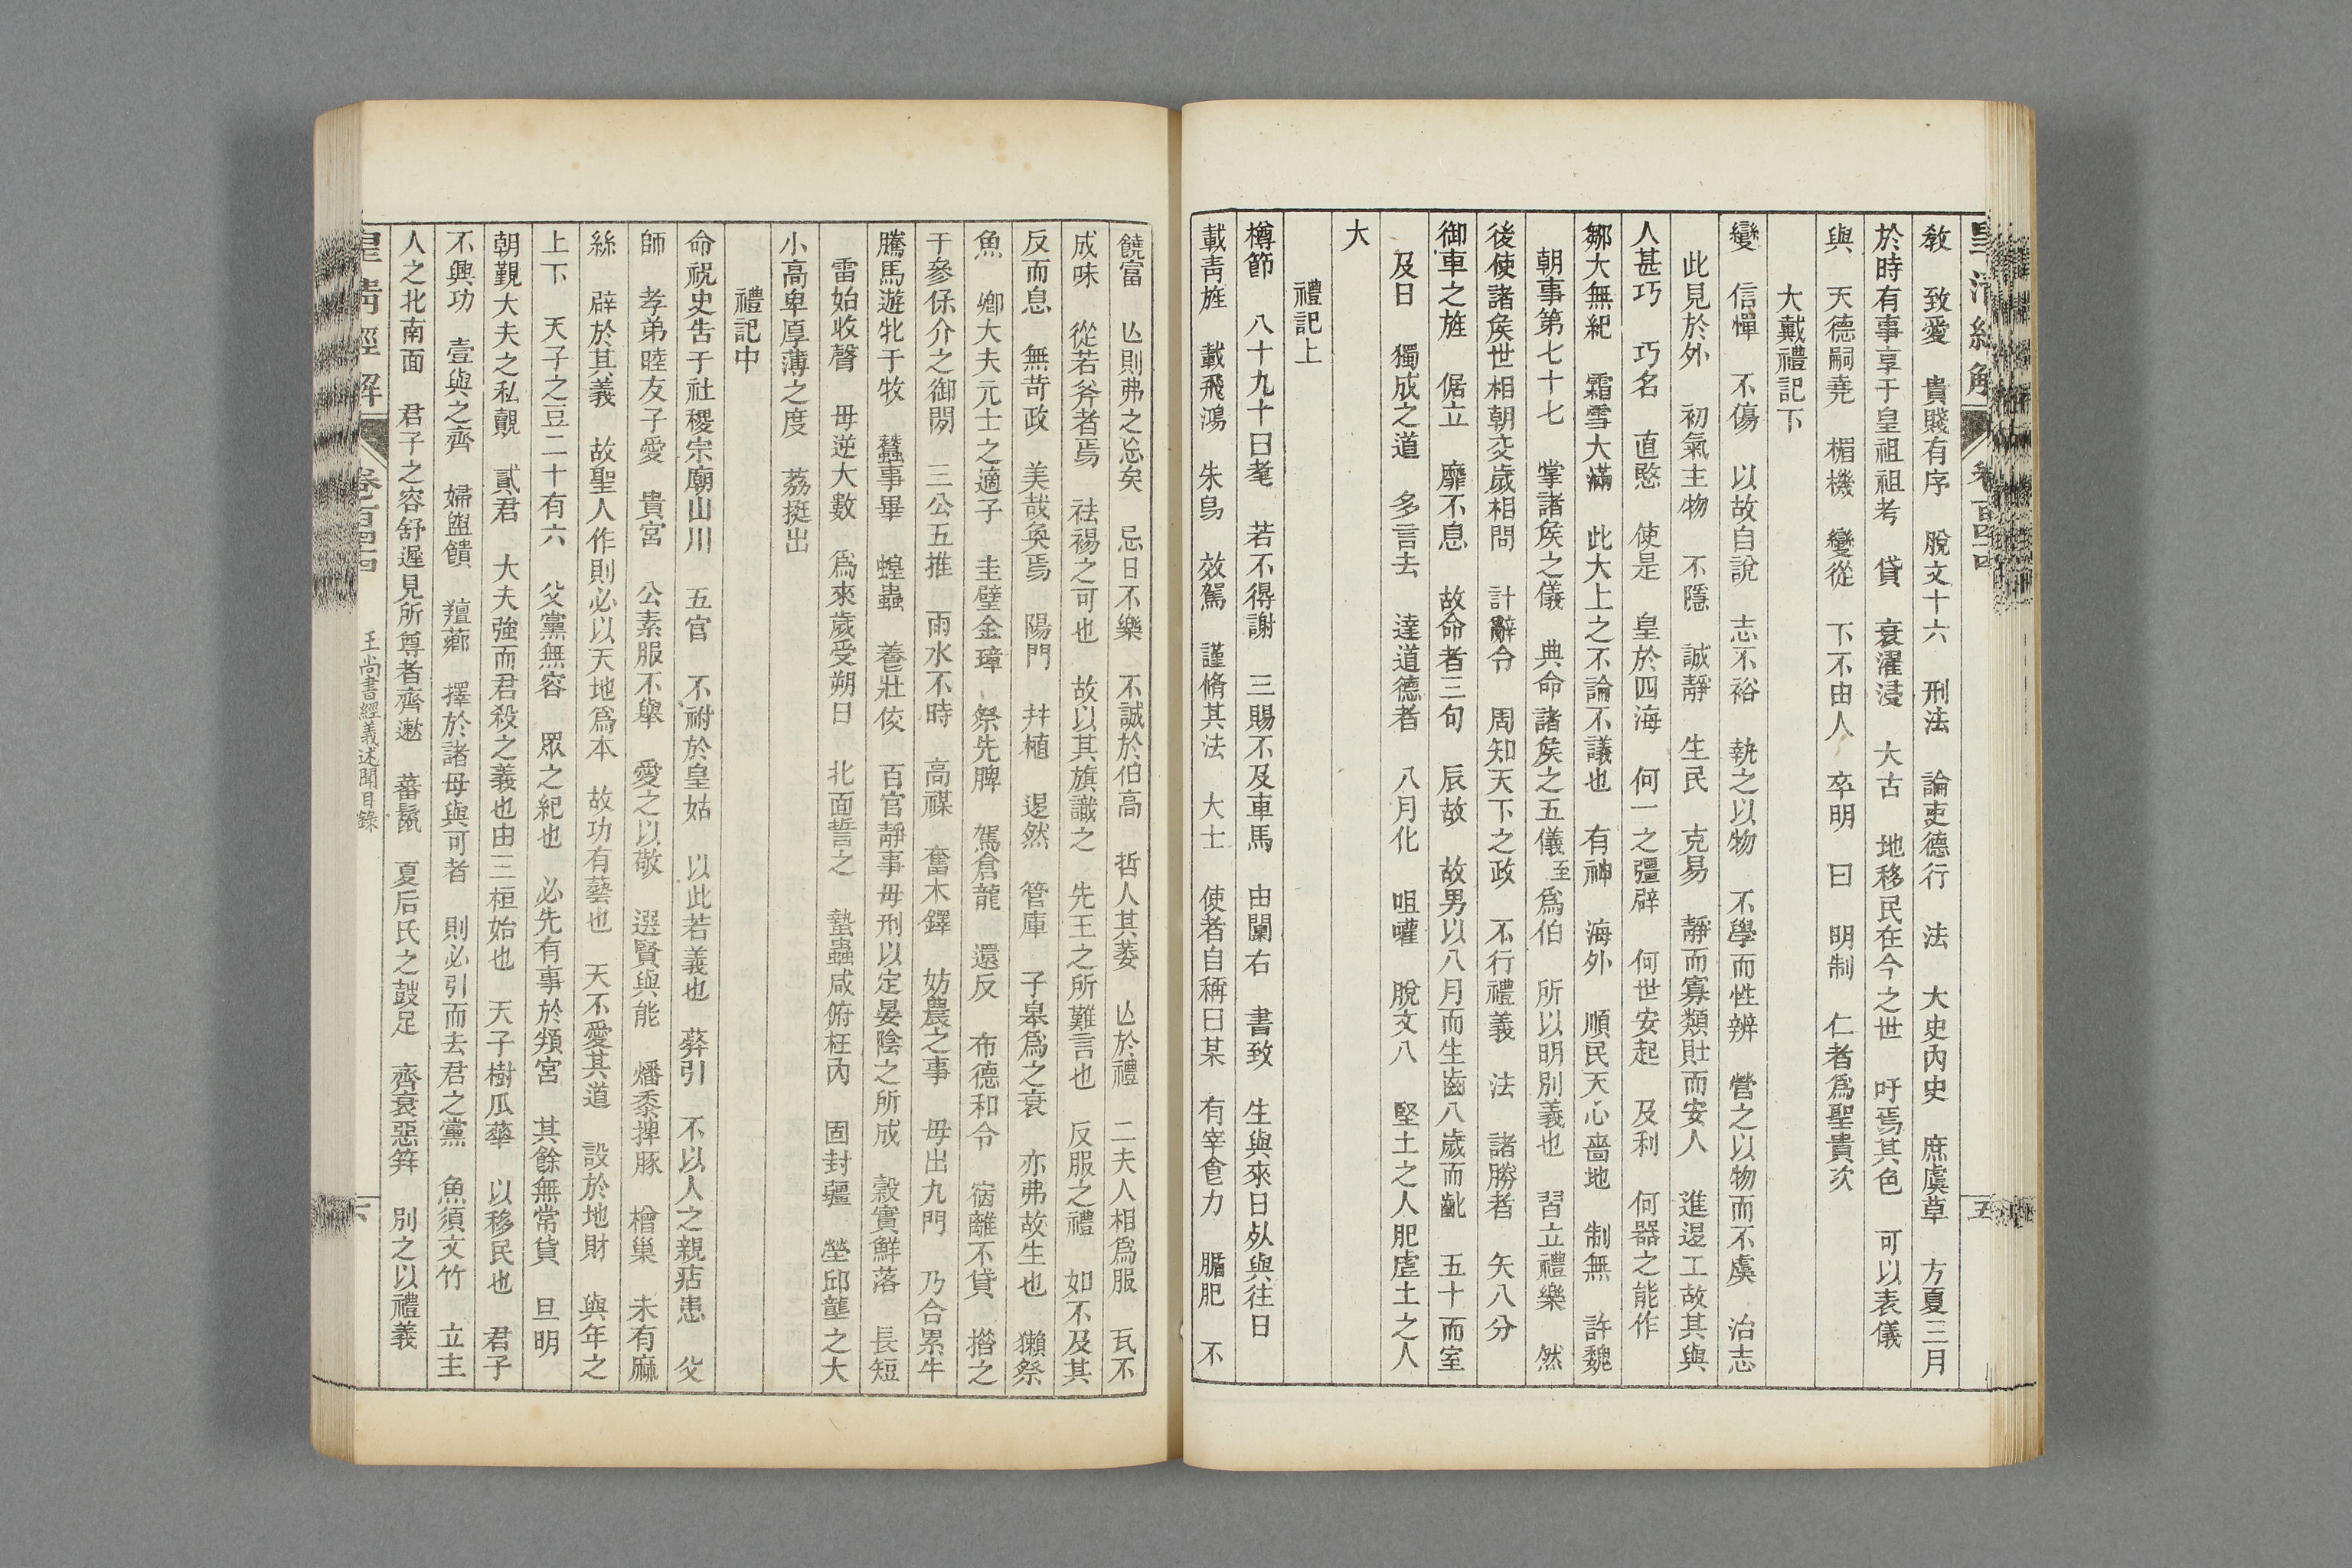 皇清經解
卷一百四十四
五
敎　致愛　貴賤有序　脫文十六　刑法　論吏德行　法　大史內史　庶虞草　方夏三月
於時有事享于皇祖祖考　貸　裒濯浸　大古　地移民在今之世　吁焉其色　可以表儀
與　天德嗣堯　楣機　變從　下不由人　卒明　曰　明制　仁者爲聖貴次
大戴禮記下
變　信憚　不傷　以故自說　志不裕　執之以物　不學而性辨　營之以物而不虞　治志
此見於外　初氣主物　不隱　誠靜　生民　克易　靜而寡類壯而安人　進退工故其與
人甚巧　巧名　直愍　使是　皇於四海　何一之彊辟　何世安起　及利　何器之能作
鄒大無紀　霜雪大滿　此大上之不論不議也　有神　海外　順民天心嗇地　制無　許魏
朝事第七十七　掌諸矦之儀　典命諸矦之五儀至爲伯　所以明別義也　習立禮樂　然
後使諸矦世相朝交歲相問　計辭令　周知天下之政　不行禮義　法　諸勝者　矢八分
御車之旌　倨立　靡不息　故命者三句　辰故　故男以八月而生齒八歲而齔　五十而室
及日　獨成之道　多言去　達道德者　八月化　咀嚾　脫文八　堅土之人肥虛土之人
大
禮記上
樽節　八十九十曰耄　若不得謝　三賜不及車馬　由闑右　書致　生與來日死與往日
載靑旌　載飛鴻　朱鳥　效駕　謹脩其法　大士　使者自稱曰某　有宰食力　腯肥　不
饒富　亾則弗之忘矣　忌日不樂　不誠於伯高　哲人其萎　亾於禮　二夫人相爲服　瓦不
成味　從若斧者焉　袪裼之可也　故以其旗識之　先王之所難言也　反服之禮　如不及其
反而息　無苛政　美哉奐焉　陽門　幷植　退然　管庫　子皋爲之衰　亦弗故生也　獺祭
魚　鄉大夫元士之適子　圭璧金璋　祭先脾　駕倉龍　還反　布德和令　宿離不貸　措之
于參保介之御閒　三公五推　雨水不時　高禖　奮木鐸　妨農之事　毋出九門　乃合累牛
騰馬遊牝于牧　蠶事畢　蝗蟲　養壯佼　百官靜事毋刑以定晏陰之所成　穀實鮮落　長短
雷始收聲　毋逆大數　爲來歲受朔日　北面誓之　蟄蟲咸俯枉內　固封疆　塋邱壟之大
小高卑厚薄之度　荔挺出
禮記中
命祝史告于社稷宗廟山川　五官　不祔於皇姑　以此若義也　葬引　不以人之親痁患　父
師　孝弟睦友子愛　貴宮　公素服不舉　愛之以敬　選賢與能　燔黍捭豚　橧巢　未有麻
絲　辟於其義　故聖人作則必以天地爲本　故功有藝也　天不愛其道　設於地財　與年之
上下　天子之豆二十有六　父黨無容　眾之紀也　必先有事於頖宮　其餘無常貨　旦明
朝覲大夫之私覿　貳君　大夫強而君殺之義也由三桓始也　天子樹瓜華　以移民也　君子
不興功　壹與之齊　婦盥饋　羶薌　擇於諸母與可者　則必引而去君之黨　魚須文竹　立主
人之北南面　君子之容舒遲見所尊者齊遫　蕃鬣　夏后氏之鼓足　齊衰惡笄　別之以禮義
皇清經解
卷一百四十四
王尚書經義述聞目錄
六